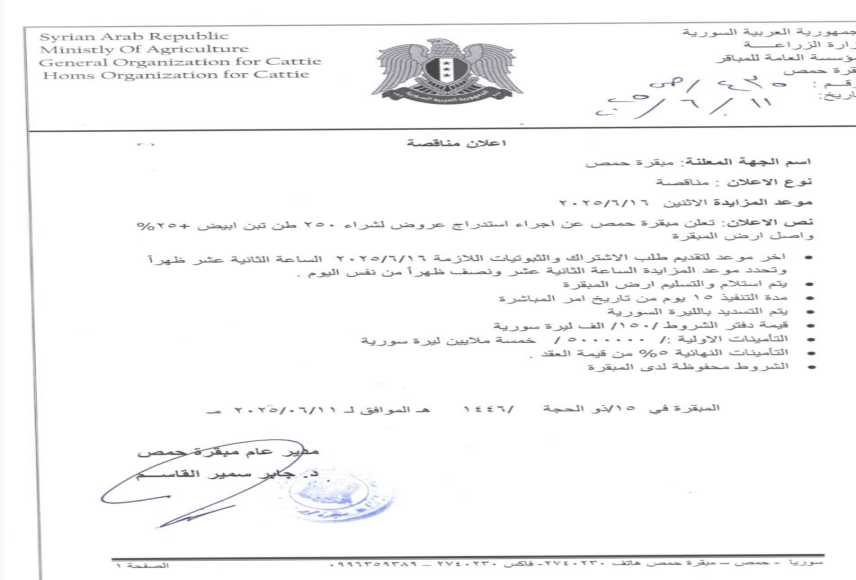 Syrian Arab Republic
Ministly Of Agriculture
General Organization for Cattie
Homs Organization for Cattie
جمهورية العربية السورية
زارة الزراعـــة
ؤسسة العامة للمباقر
قرة حمص
رقـم : ٤٣٥ /ص
اريخ: ١١ / ٦ /
اعلان مناقصة
اسم الجهة المعلنة: مبقرة حمص
نوع الاعلان : مناقصة
موعد المزايدة الاثنين ٢٠٢٥/٦/١٦
نص الاعلان: تعلن مبقرة حمص عن اجراء استدراج عروض لشراء ٢٥٠ طن تبن ابيض +٢٥%
واصل ارض المبقرة
• اخر موعد لتقديم طلب الاشتراك والثبوتيات اللازمة ٢٠٢٥/٦/١٦ الساعة الثانية عشر ظهراً
وتحدد موعد المزايدة الساعة الثانية عشر ونصف ظهراً من نفس اليوم .
• يتم استلام والتسليم ارض المبقرة
• مدة التنفيذ ١٥ يوم من تاريخ امر المباشرة
• يتم التسديد بالليرة السورية
• قيمة دفتر الشروط /١٥٠/ الف ليرة سورية
• التأمينات الاولية :/ ٥٠٠٠٠٠٠ / خمسة ملايين ليرة سورية
• التأمينات النهائية ٥% من قيمة العقد .
• الشروط محفوظة لدى المبقرة
المبقرة في ١٥/ذو الحجة /١٤٤٦ هـ الموافق لـ ٢٠٢٥/٠٦/١١ مـ
مدير عام مبقرة حمص
د. جابر سمير القاســم
سوريا - حمص – مبقرة حمص هاتف ٢٧٤٠٢٣٠- فاكس ٢٧٤٠٢٣٠ – ٠٩٩٦٣٥٩٣٨٩
الصفحة ١